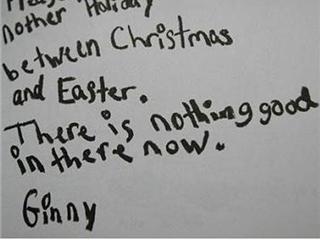 nother Holiday
between Christmas
and Easter.
There is nothing good
in there now.
Ginny